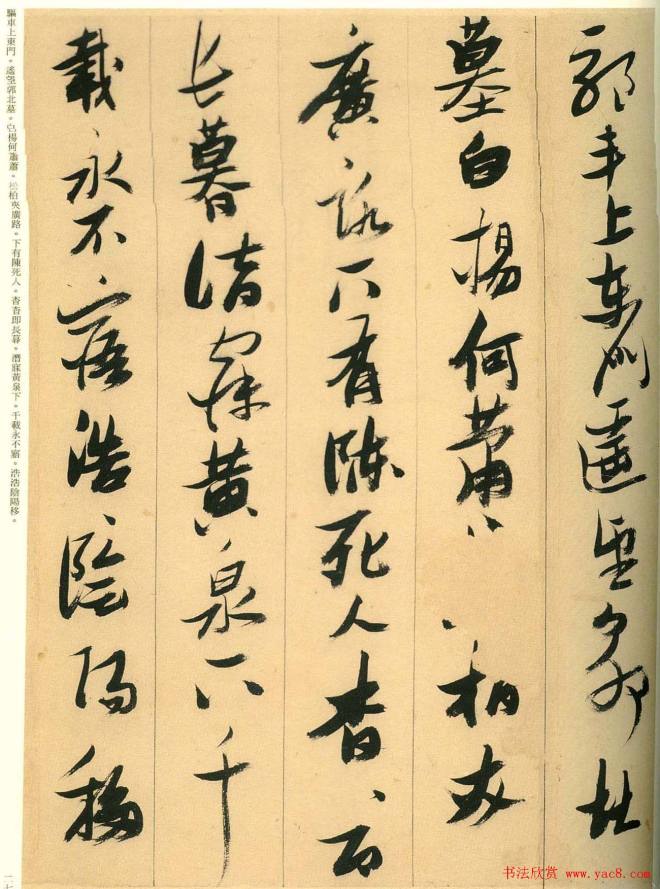 驅車上東門遙望郭北
墓白楊何蕭〻松柏夾
廣路下有陳死人杳〻即
長暮潛寐黃泉下千
載永不寤浩〻陰陽移
驅車上東門。遙望郭北墓。白楊何蕭蕭。松柏夾廣路。下有陳死人。杳杳即長暮。潛寐黃泉下。千載永不寤。浩浩陰陽移。
书法欣赏 www.yac8.com